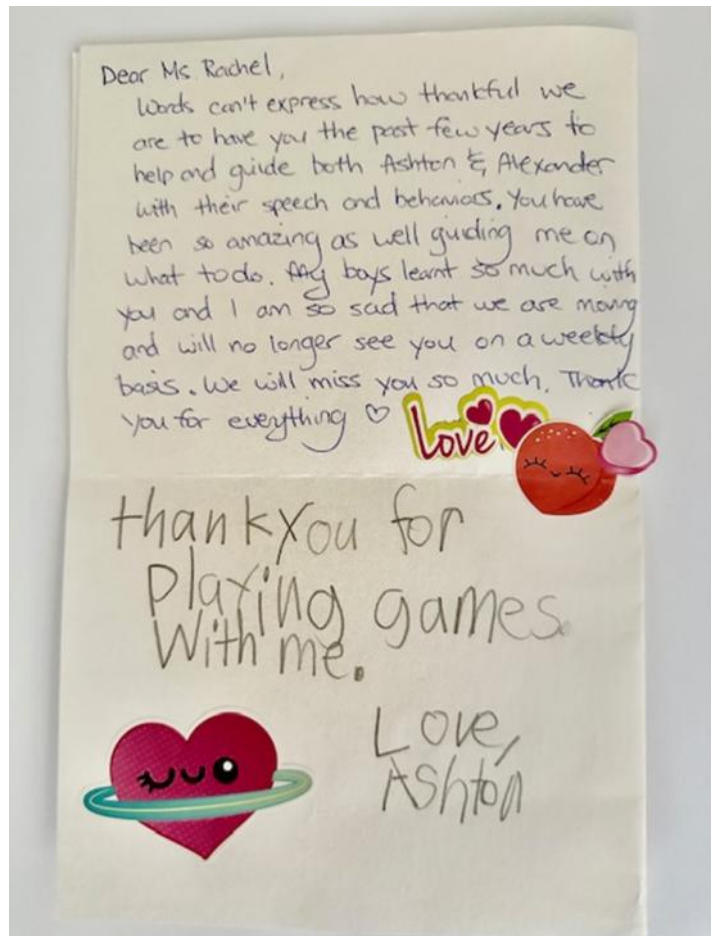 Dear Ms. Rachel,
Words can't express how thankful we
are to have you the past few years to
help and guide both Ashton & Alexander
with their speech and behaviors. You have
been so amazing as well guiding me on
what to do. My boys learnt so much with
you and I am so sad that we are moving
and will no longer see you on a weekly
basis. We will miss you so much. Thank
you for everything ♡
Love
thankYou for
Playing games.
With me.
Love,
Ashton